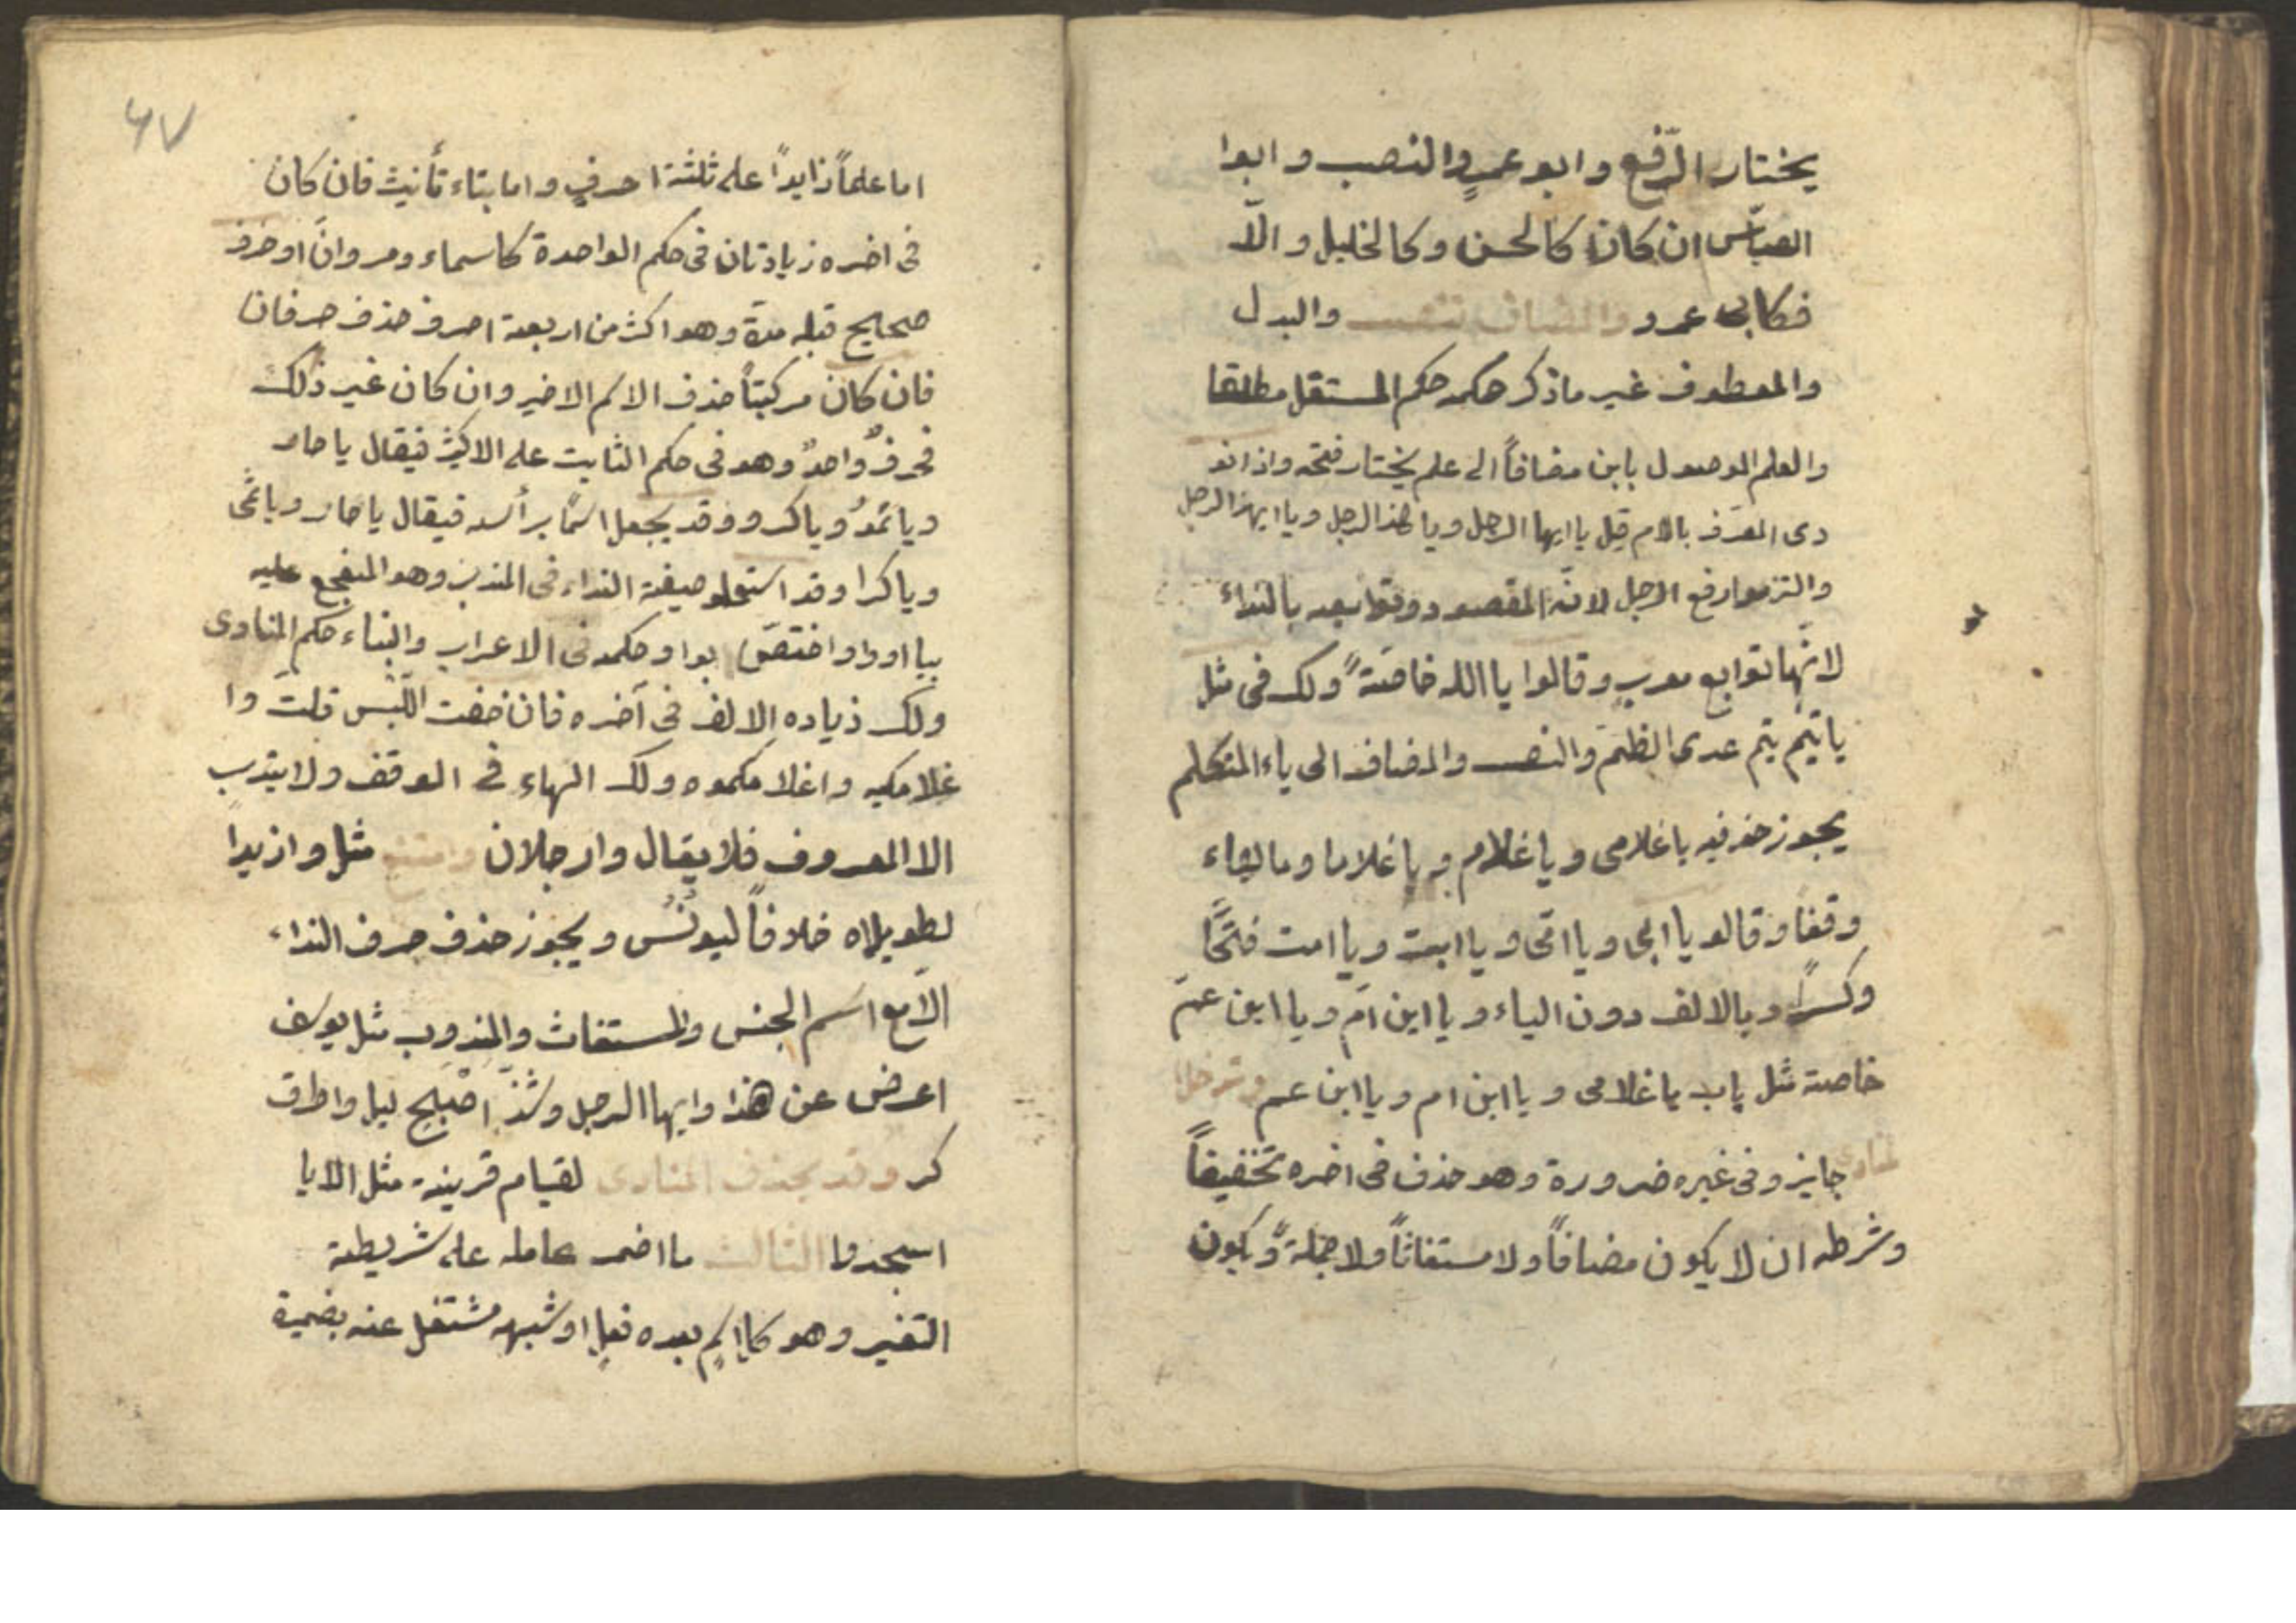 يختار الرّفع وابو عمرٍو النصب وابوا
العبّاس ان كان كالحسن وكالخليل والّا
فكابى عمرو والمضاف تنصب والبدل
والمعطوف غير ما ذكر حكمه حكم المستقل مطلقا
والعلم الموصول بابن مضافاً الى علم يختار فتحه واذا نو
دى المعرّف بالام قيل يا ايها الرجل ويا هذا الرجل ويا ايهذا الرجل
والتزموا رفع الرجل لانّه المقصود وتوابعه بالنداء
لانّها توابع معربٍ وقالوا يا الله خاصّةً ولك فى مثل
يا تيم تيم عدى الضّم والنصب والمضاف الى ياء المتكلم
يجوز حذفيه يا غلامى ويا غلام ويا غلاما وما لهاء
وقفا وقالو يا ابى ويا امّى ويا ابت ويا امت فتحًا
وكسرًا وبالالف دون الياء ويا ابن امّ ويا ابن عمّ
خاصة مثل باب يا غلامى ويا ابن ام ويا ابن عم وترخيم
لمنادى جايز وفى غيره ضرورة وهو حذف فى اخره تخفيفاً
وشرطه ان لا يكون مضافاً ولا مستغاثاً ولا جملةً ويكون
٦٧
اما علماً زايداً على ثلثة احرفٍ واما بتاء تأنيث فان كان
فى اخره زيادتان فى حكم الواحدة كاسماء ومروان او حرف
صحايح قبله مدة وهو اكثر من اربعة احرف حذف حرفان
فان كان مركبتاً حذف الاسم الاخير وان كان غير ذلك
فحرفٌ واحدٌ وهو فى حكم الثابت على الاكثر فيقال يا حار
ويا ثموُ ويا كرو وقد يجعل اسمًا برأسه فيقال يا حار ويا ثمى
ويا كرا وقد استعملو صيغة النداء فى المندب وهو المتفجع عليه
بيا او وا واختصّ بوا وحكمه فى الاعراب والبناء حكم المنادى
ولك زياده الالف فى آخره فان خفت اللّبس قلتَ وا
غلامكيه واغلامكموه ولك الهاء فى الوقف ولا يندب
الا المعروف فلا يقال وارجلان وامتنع مثل وازيدا
لطويلاه خلافاً ليونُس ويجوز حذف حرف النداء
الّا مع اسم الجنس والمستغاث والمندوب مثل يوسف
اعرض عن هذا وايها الرجل وشذّ اصبح ليل واطرق
كر وقد يحذف المنادى لقيام قرينة مثل الا يا
اسجدوا الثالث ما اضمر عامله على شريطة
التفير وهو كل اسمٍ بعده فعل او شبهه مشتغل عنه بضميرة